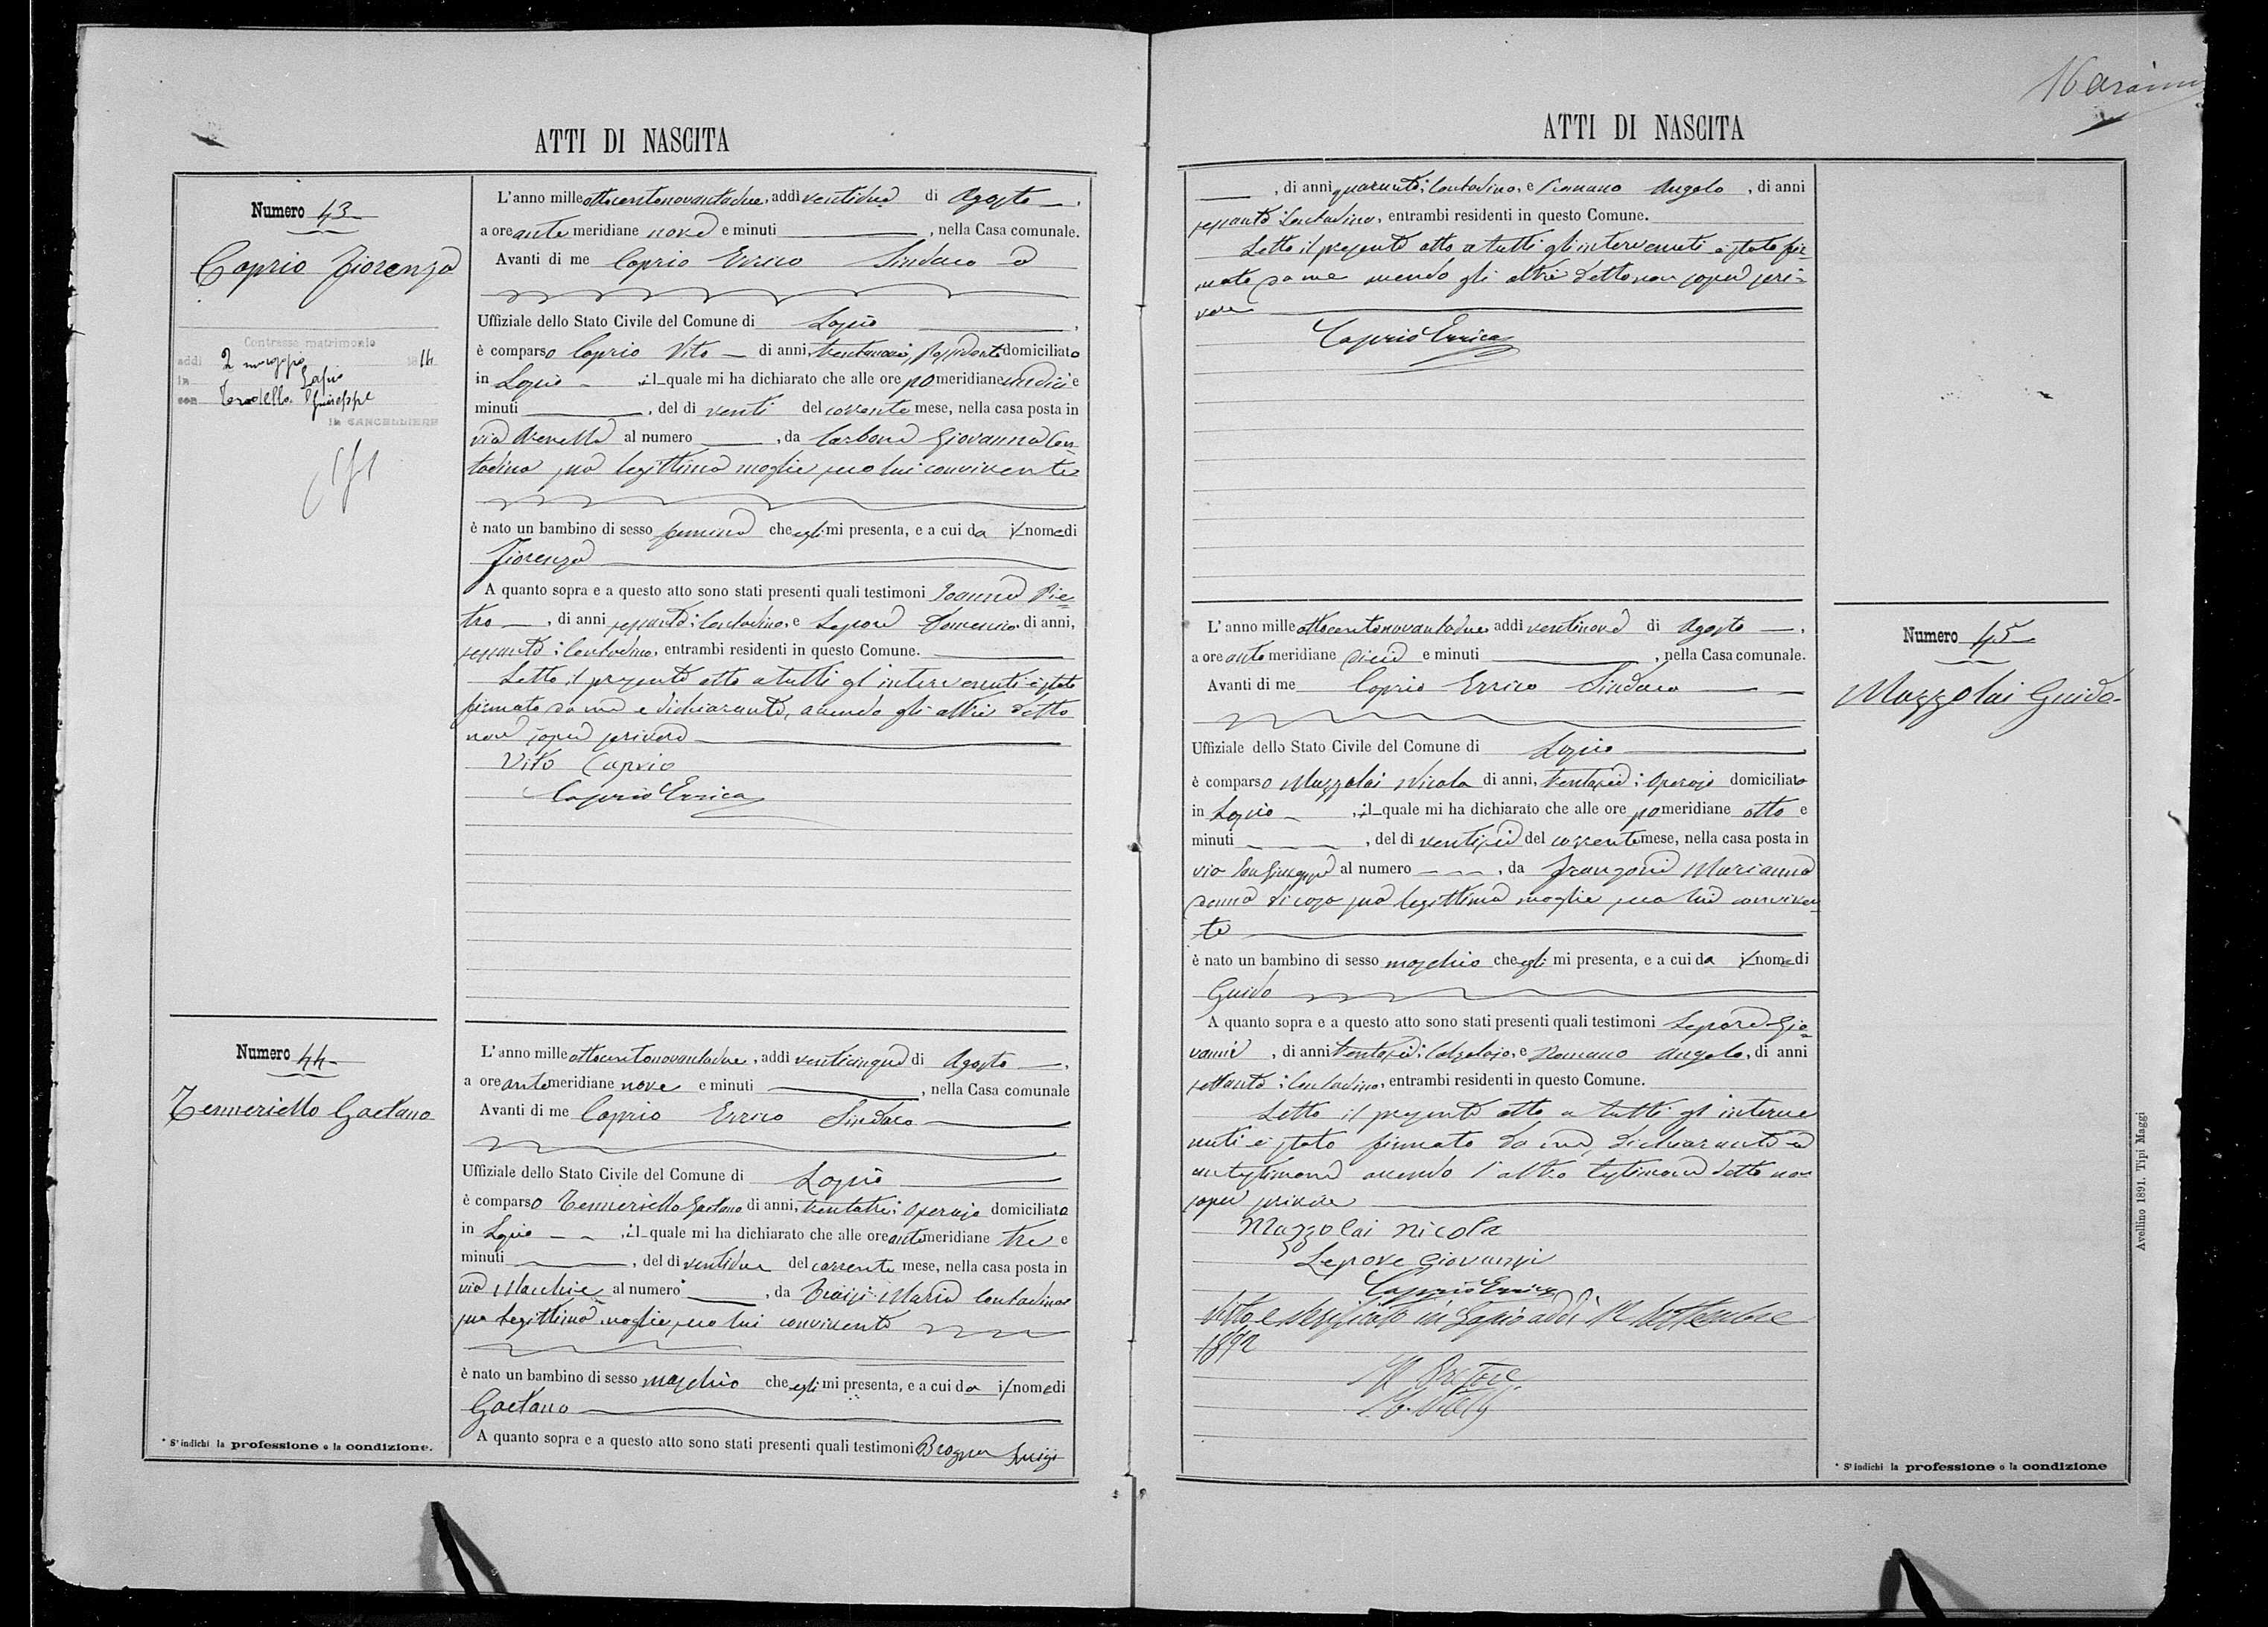 ATTI DI NASCITA
Numero 43
Caprio Fiorenza
Contrasse matrimonio
addi 2 maggio 1914
in Lapio
con Giuseppe
IL CANCELLIERE
L'anno milleottocentonovantadue, addì ventidue di Agosto,
a ore antemeridiane nove e minuti , nella Casa comunale.
Avanti di me Caprio Errico Sindaco
Uffiziale dello Stato Civile del Comune di Lapio,
è comparso Caprio Vito di anni, possidente domiciliato
in Lapio il quale mi ha dichiarato che alle ore pomeridiane undici e
minuti , del dì venti del corrente mese, nella casa posta in
via al numero , da Carbone Giovanna Con-
tadina sua legittima moglie seco lui convivente
è nato un bambino di sesso femina che egli mi presenta, e a cui da il nome di
Fiorenza
A quanto sopra e a questo atto sono stati presenti quali testimoni Pie=
tro , di anni sessanta; Contadino, e Lepore Domenico di anni,
sessanta; Contadino, entrambi residenti in questo Comune.
Letto il presente atto a tutti gl'intervenuti è stato
firmato da me e dichiarante, avendo gli altri detto
non saper scrivere
Vito Caprio
Caprio Errico
Numero 44
Tenneriello Gaetano
L'anno milleottocentonovantadue, addì venticinque di Agosto,
a ore antemeridiane nove e minuti , nella Casa comunale
Avanti di me Caprio Errico Sindaco
Uffiziale dello Stato Civile del Comune di Lapio
è comparso Tenneriello Gaetano di anni, trentatre; Operajo domiciliato
in Lapio , il quale mi ha dichiarato che alle ore antemeridiane tre e
minuti , del dì ventidue del corrente mese, nella casa posta in
via Macchie al numero , da Maria Contadina
sua legittima moglie seco lui convivente
è nato un bambino di sesso maschio che egli mi presenta, e a cui da il nome di
Gaetano
A quanto sopra e a questo atto sono stati presenti quali testimoni Brogna Luigi
* S'indichi la professione o la condizione.
ATTI DI NASCITA
, di anni quaranta; Contadino, e Romano Angelo, di anni
Contadino, entrambi residenti in questo Comune.
Letto il presente atto a tutti gli intervenuti è stato fir=
mato da me avendo gli altri detto non saper scri=
vere
Caprio Errico
L'anno milleottocentonovantadue addì ventinove di Agosto,
a ore antemeridiane dieci e minuti , nella Casa comunale.
Avanti di me Caprio Errico Sindaco
Uffiziale dello Stato Civile del Comune di Lapio
è comparso Mazzolai Nicola di anni, trentasei; Operajo domiciliato
in Lapio , il quale mi ha dichiarato che alle ore pomeridiane otto e
minuti , del dì ventisei del corrente mese, nella casa posta in
via San Giuseppe al numero , da Franzone Marianna
donna di casa sua legittima moglie seco lui conviven
te
è nato un bambino di sesso maschio che egli mi presenta, e a cui da il nome di
Guido
A quanto sopra e a questo atto sono stati presenti quali testimoni Lepore Gio=
vanni , di anni trentasei; Calzolajo, e Romano Angelo, di anni
settanta; Contadino, entrambi residenti in questo Comune.
Letto il presente atto a tutti gl'interve
nuti è stato firmato da me, dichiarante ed
un testimone avendo l'altro testimone detto non
saper scrivere
Mazzolai Nicola
Lepore Giovanni
Caprio Errico
Visto e verificato in Lapio addì 12 Settembre
1892
Il Pretore
Numero 45
Mazzolai Guido
* S'indichi la professione o la condizione
Avellino 1891. Tipi Maggi